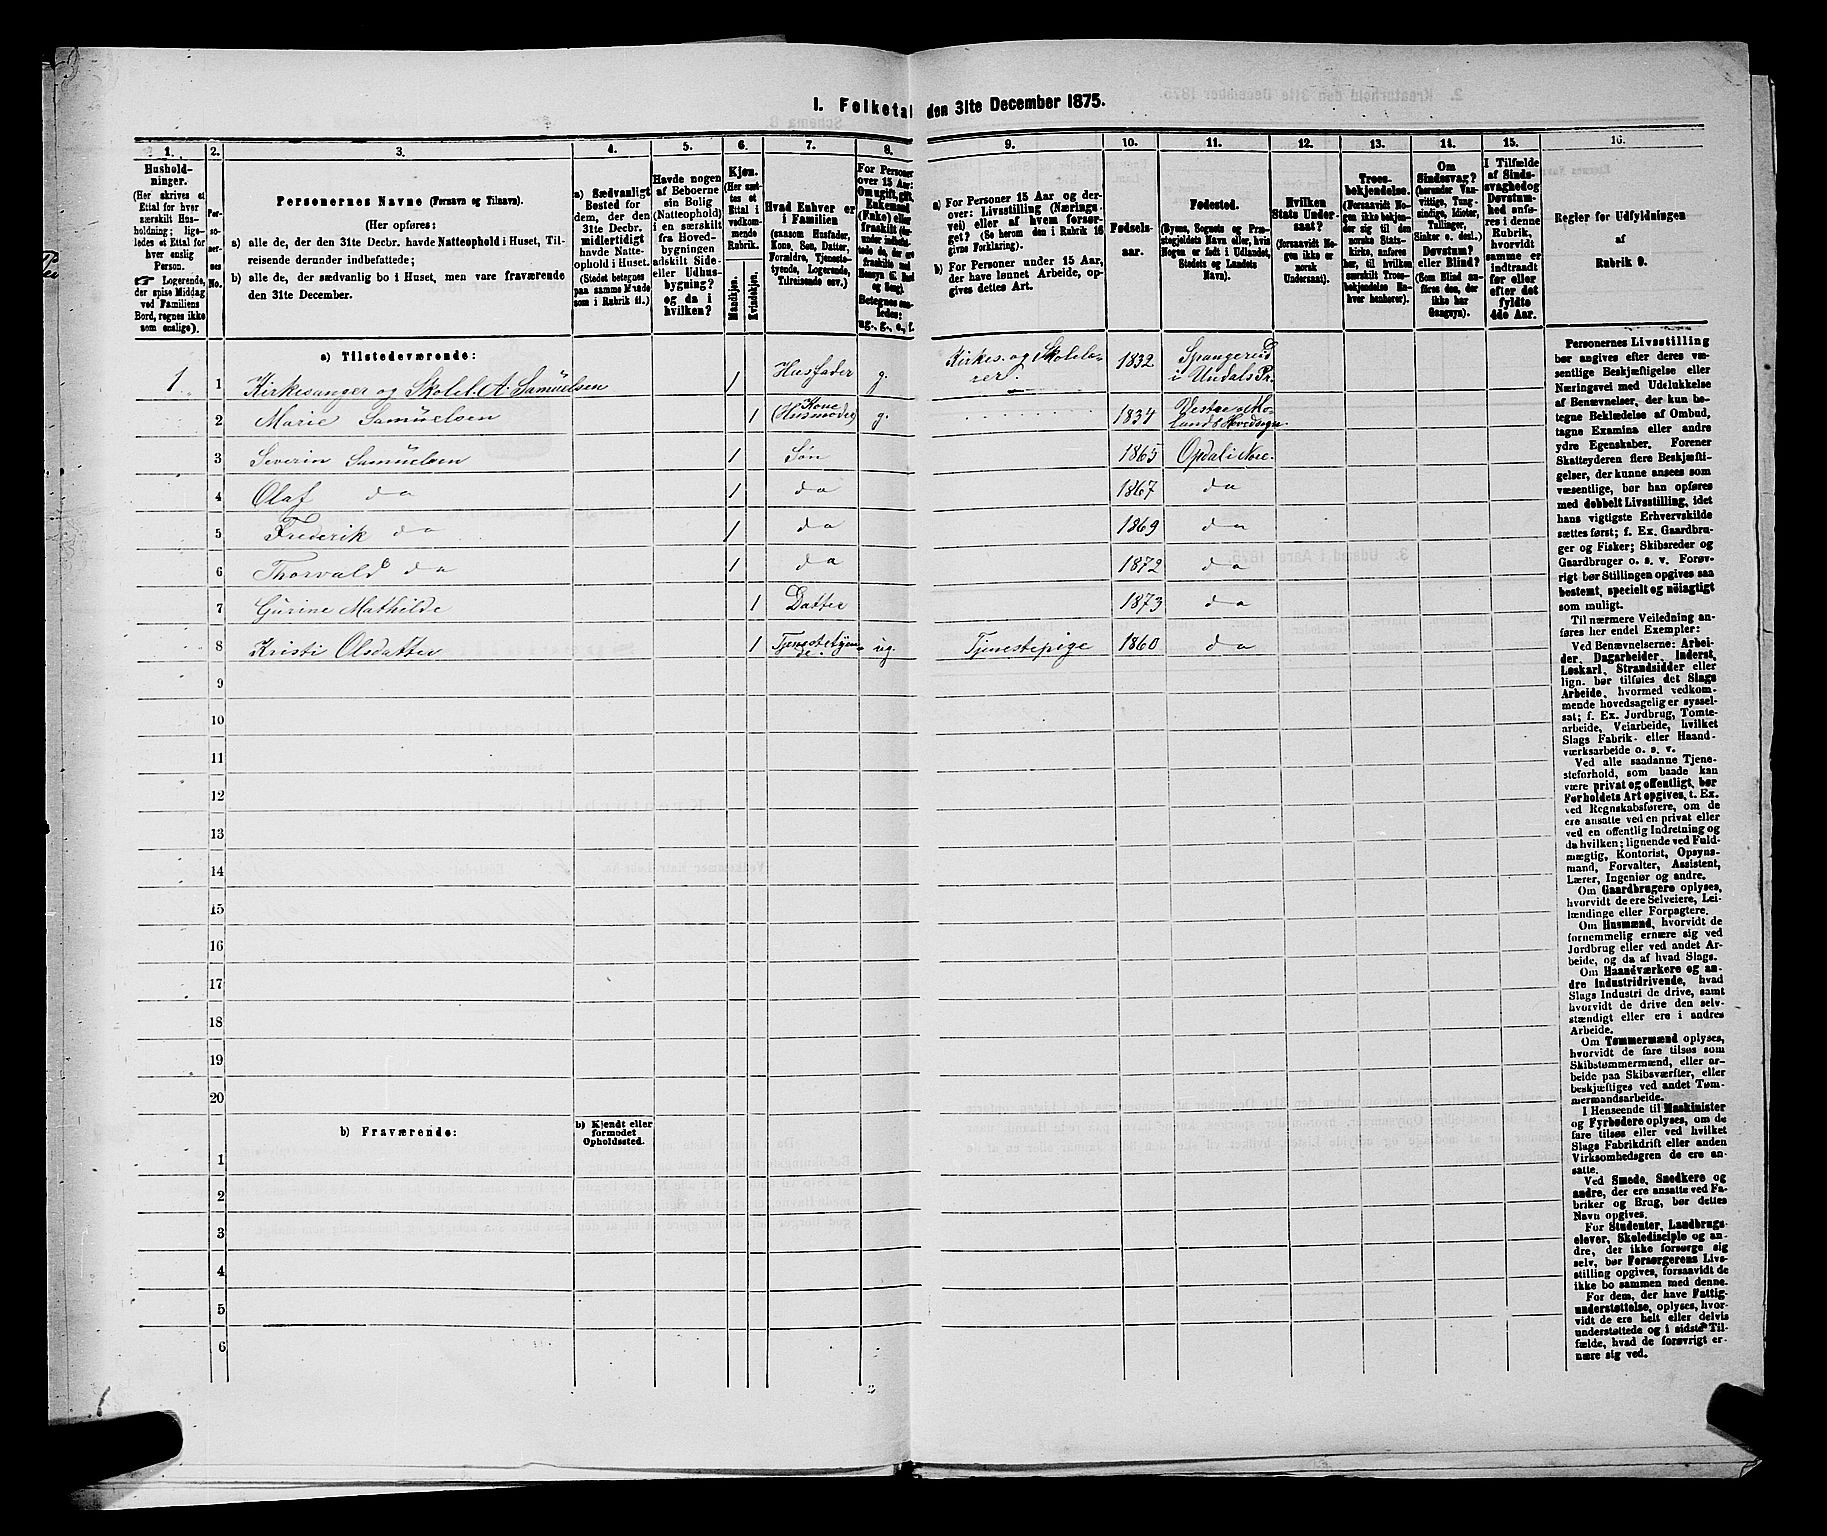 I. Folketal den 31te December 1875.
1. 2. 3. 4. 5. 6. 7. 8. 9. 10. 11. 12. 13. 14. 15. 16.
Hushold-
ninger.
(Her skrives et
Ettal for hver
særskilt Hus-
holdning; lige-
ledes et Ettal for
hver enslig
Person.
☞ Logerende,
der spise Middag
ved Familiens
Bord, regnes ikke
som enslige).
Per-
so-
ner-
nes
No.
Personernes Navne (Fornavn og Tilnavn).
(Her opføres:
a) alle de, der den 31te Decbr. havde Natteophold i Huset, Til-
reisende derunder indbefattede;
b) alle de, der sædvanlig bo i Huset, men vare fraværende
den 31te December.
a) Sædvanligt
Bosted for
dem, der den
31te Decbr.
midlertidigt
havde Natte-
ophold i Huset.
(Stedet betegnes
paa samme Maade
som i Rubrik 11.)
Havde nogen
af Beboerne
sin Bolig
(Natteophold)
i en særskilt
fra Hoved-
bygningen
adskilt Side-
eller Udhus-
bygning?
og da i
hvilken?
Kjøn.
(Her sæt-
tes et
Ettal i
vedkom-
mende
Rubrik.
Mandkjøn.
Kvindekjøn.
Hvad Enhver er
i Familien
(saasom Husfader,
Kone, Søn, Datter,
Forældre, Tjeneste-
tyende, Logerende,
Tilreisende osv.)
For Personer
over 15 Aar:
Om ugift, gift,
Enkemand
(Enke) eller
fraskilt
Betegnes saa-
ledes:
ug., g., e., f.
a) For Personer 15 Aar og der-
over: Livsstilling (Nærings-
vei) eller af hvem forsør-
get? (Se herom den i Rubrik 16
givne Forklaring).
b) For Personer under 15 Aar,
der have lønnet Arbeide, op-
gives dettes Art.
Fødsels-
aar.
Fødested.
(Byens, Sognets og Præ-
stegjeldets Navn eller, hvis
Nogen er født i Udlandet,
Stedets og Landets
Navn).
Hvilken
Stats Under-
saat?
(forsaavidt No-
gen ikke er
norsk
Undersaat).
Troes-
bekjendelse.
(Forsaavidt No-
gen ikke bekjen-
der sig til den
norske Stats-
kirke, anføres
her, til hvilken
særskilt Troes-
bekjendelse En-
hver henhører).
Om
Sindssvag?
(herunder Van-
vittige, Tung-
sindige, Idioter,
Tullinger,
Sinker o. desl.)
Døvstum?
eller Blind?
(Som Blind an-
føres den, der
ikke har
Gangsyn).
I Tilfælde
af Sinds-
svaghed og
Døvstum-
hed anfø-
res i denne
Rubrik,
hvorvidt
samme er
indtraadt
før eller
efter det
fyldte
4de Aar.
Regler for Udfyldningen
af
Rubrik 9.
a) Tilstedeværende:
1 1 Kirkesanger og Skolel. A. Samuelsen 1 Husfader g. Kirkes. og Skolelæ-
rer. 1832 Spangereid
i Undals Pr.
2 Marie Samuelsen 1 Kone
(Husmoder) g. 1834 Vestre
lands Hovedsogn.
3 Severin Samuelsen 1 Søn 1865 Opdal i Nore.
4 Olaf do 1 do 1867 do
5 Frederik do 1 do 1869 do
6 Thorvald do 1 do 1872 do
7 Gurine Mathilde 1 Datter 1873 do
8 Kristi Olsdatter 1 Tjenestetyen-
de. ug. Tjenestepige 1860 do
9
10
11
12
13
14
15
16
17
18
19
20
b) Fraværende:
b) Kjendt eller
formodet
Opholdssted.
1
2
3
4
5
6
Personernes Livsstilling
bør angives efter deres væ-
sentlige Beskjæftigelse eller
Næringsvei med Udelukkelse
af Benævnelser, der kun be-
tegne Beklædelse af Ombud,
tagne Examina eller andre
ydre Egenskaber. Forener
Skatteyderen flere Beskjæfti-
gelser, der kunne ansees som
væsentlige, bør han opføres
med dobbelt Livsstilling, idet
hans vigtigste Erhvervskilde
sættes først; f. Ex. Gaardbru-
ger og Fisker; Skibsreder og
Gaardbruger o. s. v. Forøv-
rigt bør Stillingen opgives saa
bestemt, specielt og nöiagtigt
som muligt.
Til nærmere Veiledning an-
føres her endel Exempler:
Ved Benævnelserne: Arbei-
der, Dagarbeider, Inderst,
Løskarl, Strandsidder eller
lign. bør tilføies det Slags
Arbeide, hvormed vedkom-
mende hovedsagelig er syssel-
sat; f. Ex. Jordbrug, Tomte-
arbeide, Veiarbeide, hvilket
Slags Fabrik- eller Haand-
værksarbeide o. s. v.
Ved alle saadanne Tjene-
steforhold, som baade kan
være privat og offentligt, bør
Forholdets Art opgives, t. Ex.
ved Regnskabsførere, om de
ere ansatte ved en privat eller
ved en offentlig Indretning og
da hvilken; lignende ved Fuld-
mægtig, Kontorist, Opsyns-
mand, Forvalter, Assistent,
Lærer, Ingeniør og andre.
Om Gaardbrugere oplyses,
hvorvidt de ere Selveiere, Lei-
lændinge eller Forpagtere.
Om Husmænd, hvorvidt de
fornemmelig ernære sig ved
Jordbrug eller ved andet Ar-
beide, og da af hvad Slags.
Om Haandværkere og an-
dre Industridrivende, hvad
Slags Industri de drive, samt
hvorvidt de drive den selv-
stændigt eller ere i andres
Arbeide.
Om Tømmermænd oplyses,
hvorvidt de fare tilsøs som
Skibstømmermænd, eller ar-
beide paa Skibsværfter, eller
beskjæftiges ved andet Tøm-
mermandsarbeide.
I Henseende til Maskinister
og Fyrbødere oplyses, om de
fare tilsøs eller ved hvilket
Slags Fabrikdrift eller anden
Virksomhedsgren de ere an-
satte.
Ved Smede, Snedkere og
andre, der ere ansatte ved Fa-
briker og Brug, bør dettes
Navn opgives.
For Studenter, Landbrugs-
elever, Skoledisciple og an-
dre, der ikke forsørge sig
selv, bør Forsørgerens Livs-
stilling opgives, forsaavidt de
ikke bo sammen med denne.
For dem, der have Fattig-
understøttelse, oplyses, hvor-
vidt de ere helt eller delvis
understøttede og i sidste Til-
fælde, hvad de forøvrigt er-
nære sig ved.